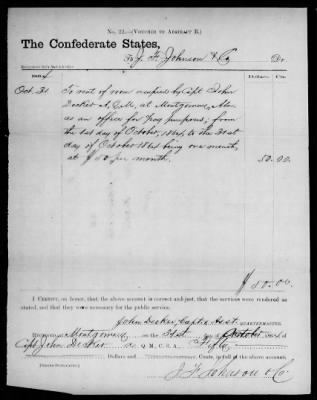 No. 22.—(Voucher to Abstract B.)
The Confederate States,
To J. F. Johnson & Co Dr.
Dollars. Cts.
Oct. 31 To rent of room occupied by Capt John
Decker A.Q.M., at Montgomery, Ala
as an office for pay purposes; from
the 1st day of October, 1864, to the 31st
day of October 1864 being one month,
at $50 per month. 50.00
$50.00
I Certify, on honor, that the above account is correct and just; that the services were rendered as
stated, and that they were necessary for the public service.
John Decker, Capt & Asst Quartermaster.
Montgomery the 31st of October
Capt John Decker A. Q. M., C. S. A.,
Dollars and Cents, in full of the above account.
[Signed Duplicates.]
J F Johnson & Co.